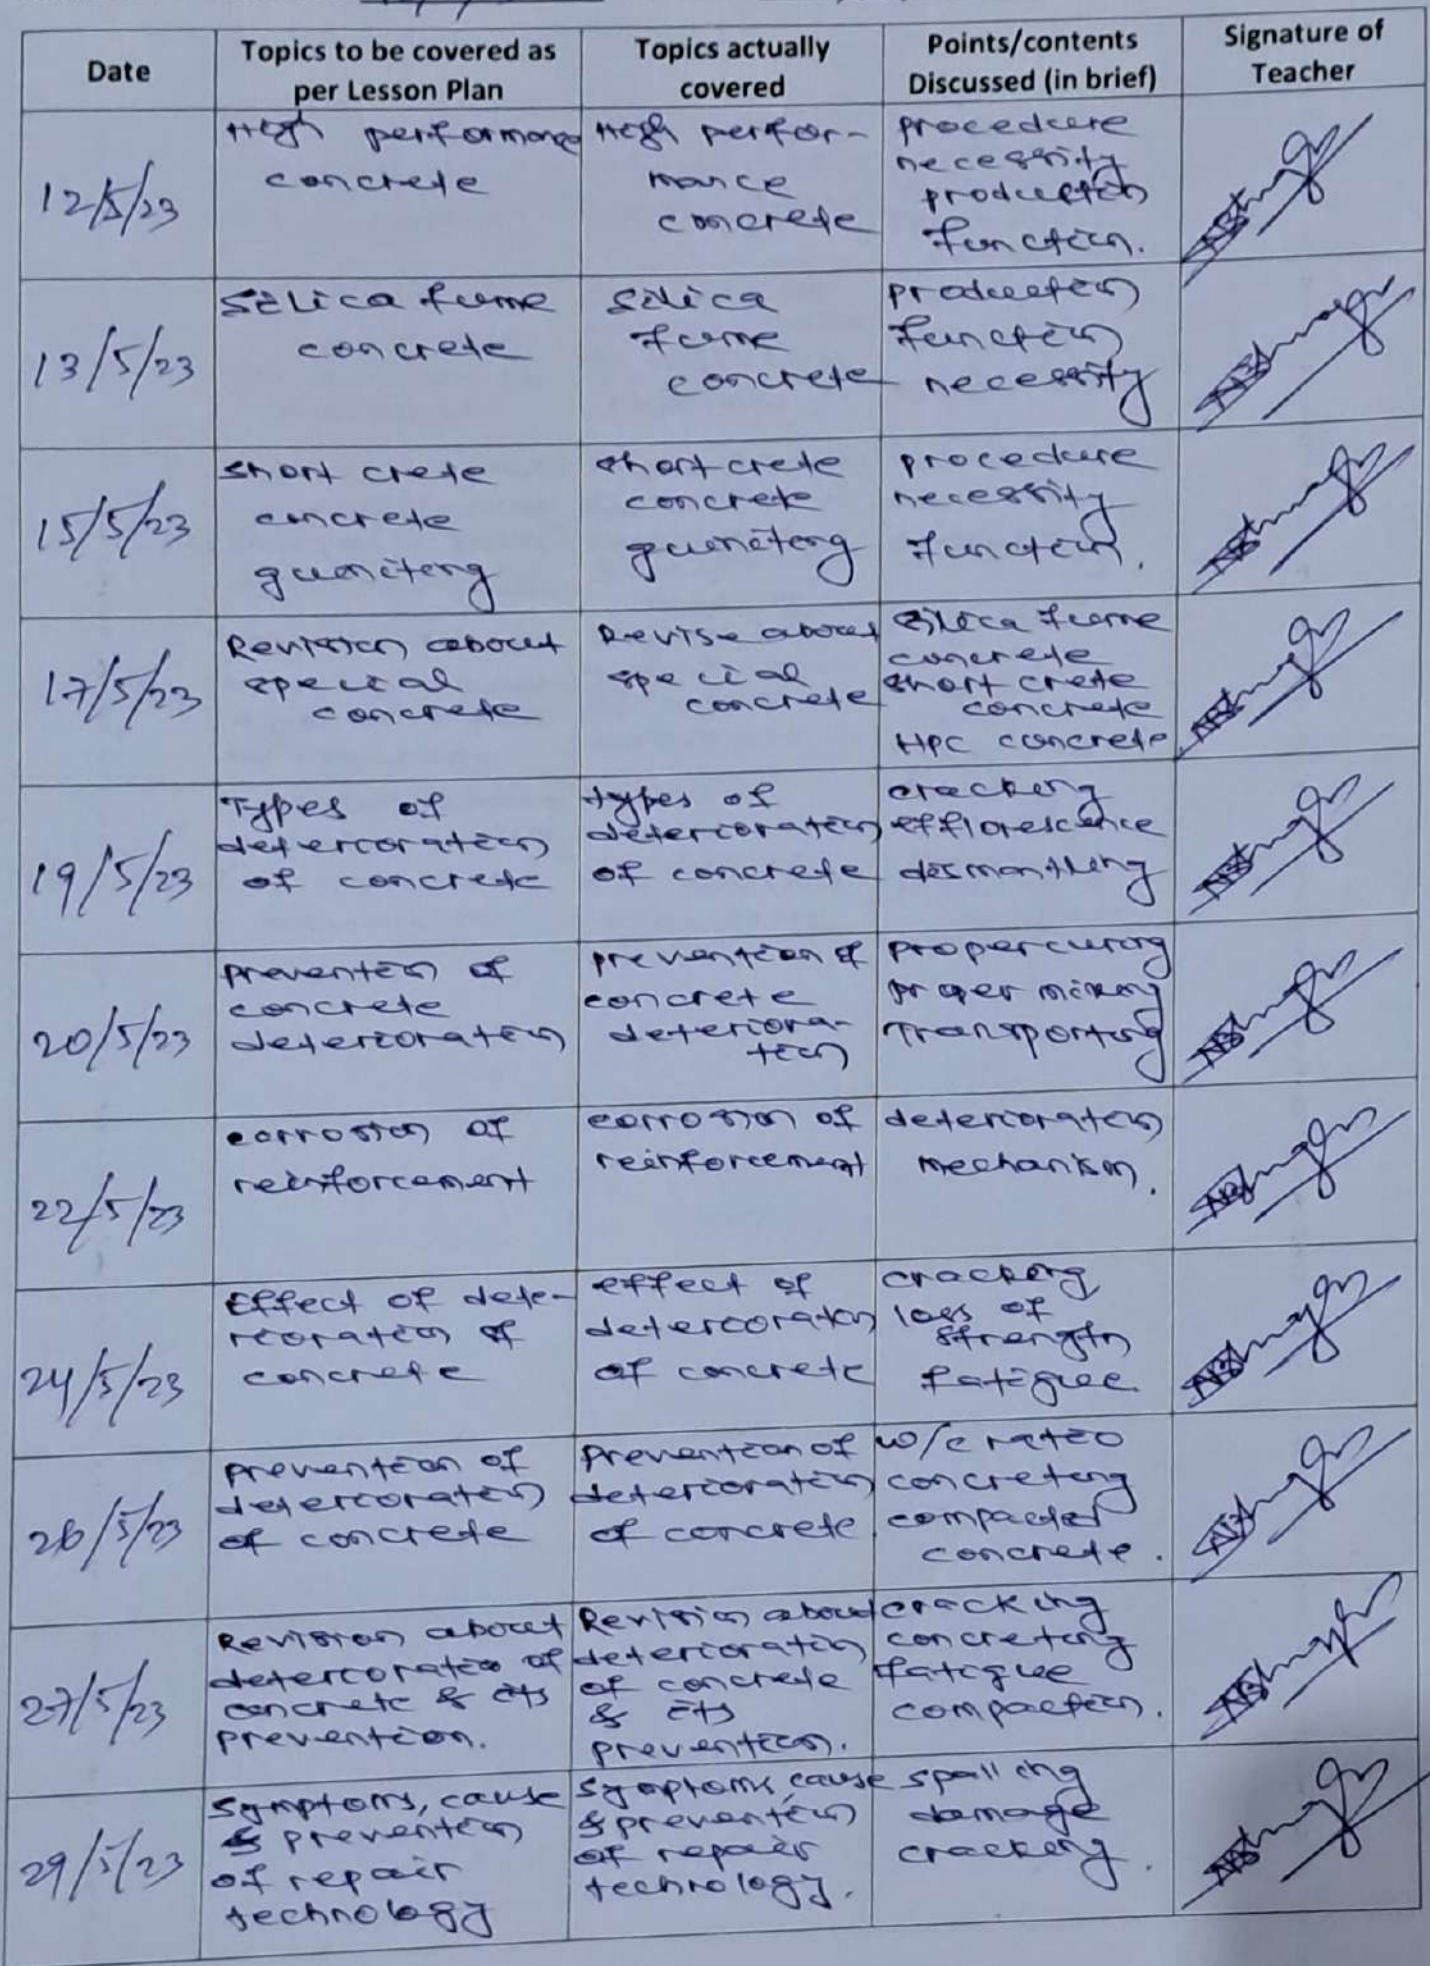 Date | Topics to be covered as per Lesson Plan | Topics actually covered | Points/contents Discussed (in brief) | Signature of Teacher
12/5/23 | High performance concrete | High perfor-mance concrete | procedure necessity production function.
13/5/23 | Silica fume concrete | Silica fume concrete | production function necessity
15/5/23 | short crete concrete guniting | short crete concrete guniting | procedure necessity function.
17/5/23 | Revision about special concrete | Revise about special concrete | Silica fume concrete short crete concrete HPC concrete
19/5/23 | Types of deterioration of concrete | types of deterioration of concrete | cracking efflorescence dismantling
20/5/23 | prevention of concrete deterioration | prevention of concrete deteriora-tion | Proper curing proper mixing Transporting
22/5/23 | corrosion of reinforcement | corrosion of reinforcement | deterioration mechanism.
24/5/23 | Effect of dete-rioration of concrete | effect of deterioration of concrete | cracking loss of strength fatigue.
26/5/23 | prevention of deterioration of concrete | Prevention of deterioration of concrete | w/c ratio concreting compacted concrete.
27/5/23 | Revision about deterioratio of concrete & its prevention. | Revision about deterioration of concrete & its prevention. | cracking concreting fatigue compaction.
29/5/23 | Symptoms, cause & prevention of repair technology | Symptoms, cause & prevention of repair technology. | spalling damage cracking.